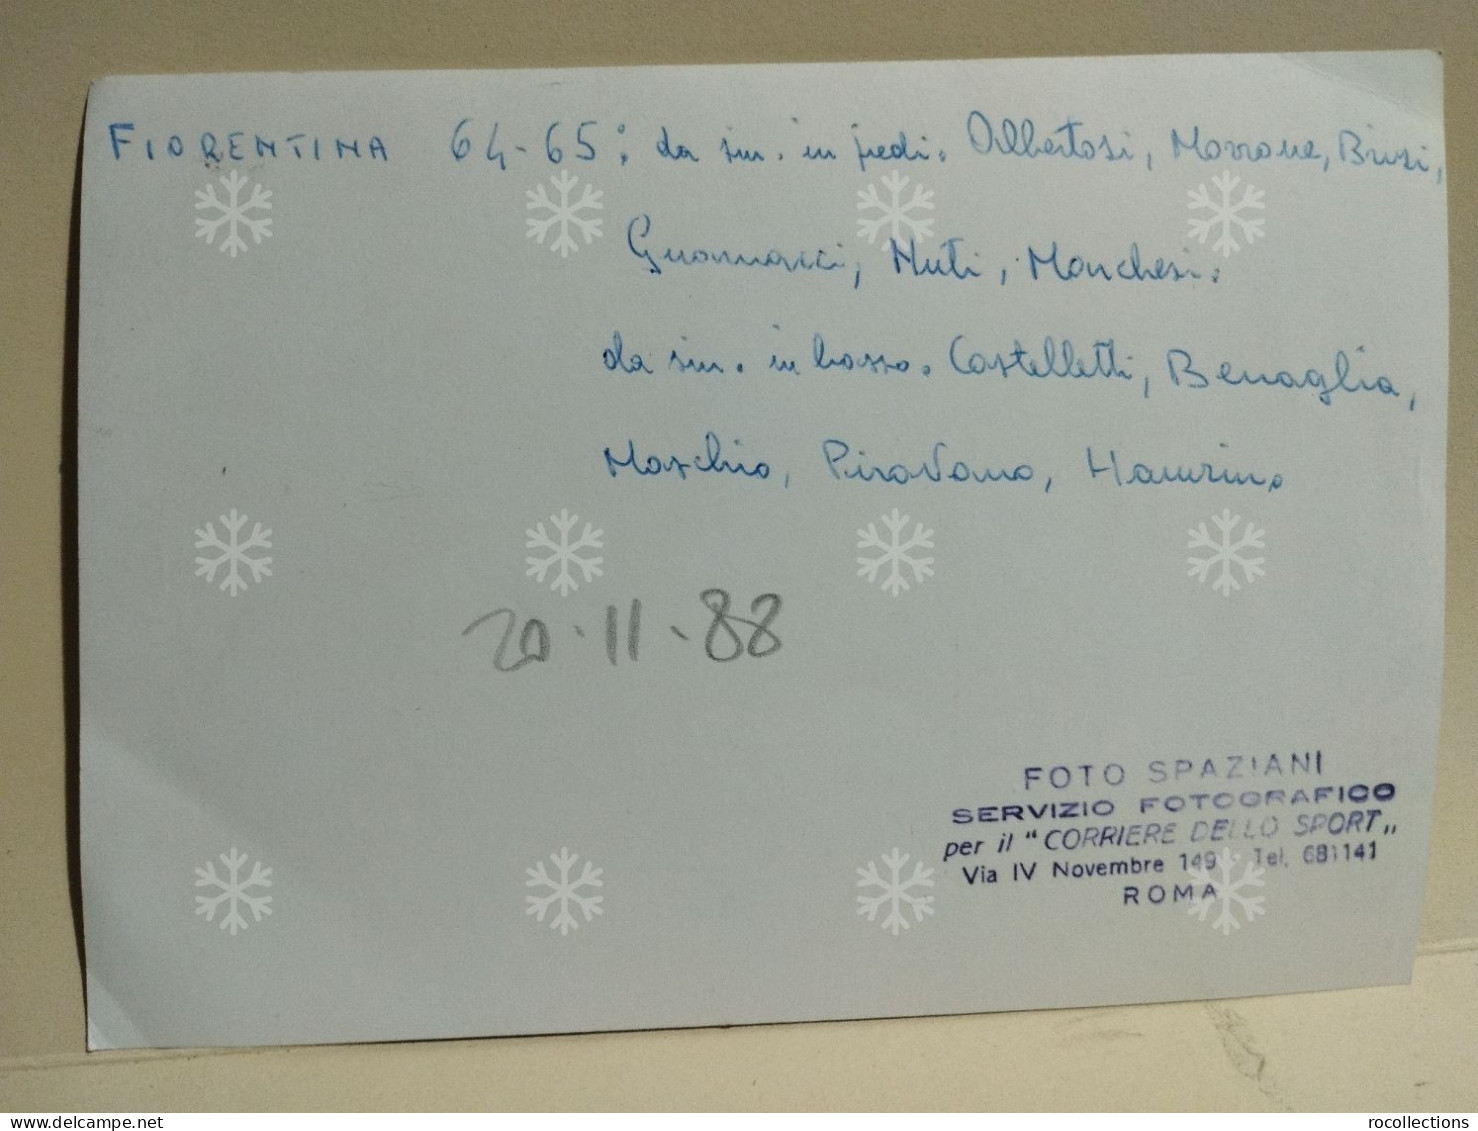 FIORENTINA 64-65: da sin. in piedi. Albertosi, Morrone, Brizi,
Guarnacci, Nuti, Marchesi.
da sin. in basso. Castelletti, Benaglia,
Maschio, Pirovano, Hamrin.
20.11.88
FOTO SPAZIANI
SERVIZIO FOTOGRAFICO
per il "CORRIERE DELLO SPORT„
Via IV Novembre 149 Tel. 681141
ROMA
rocollections